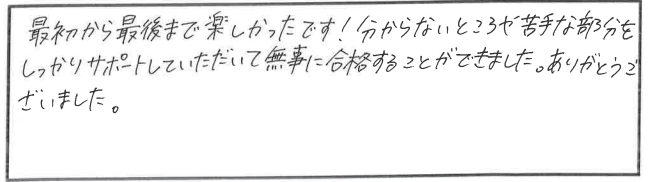 最初から最後まで楽しかったです！分からないところや苦手な部分を
しっかりサポートしていただいて無事に合格することができました。ありがとうご
ざいました。